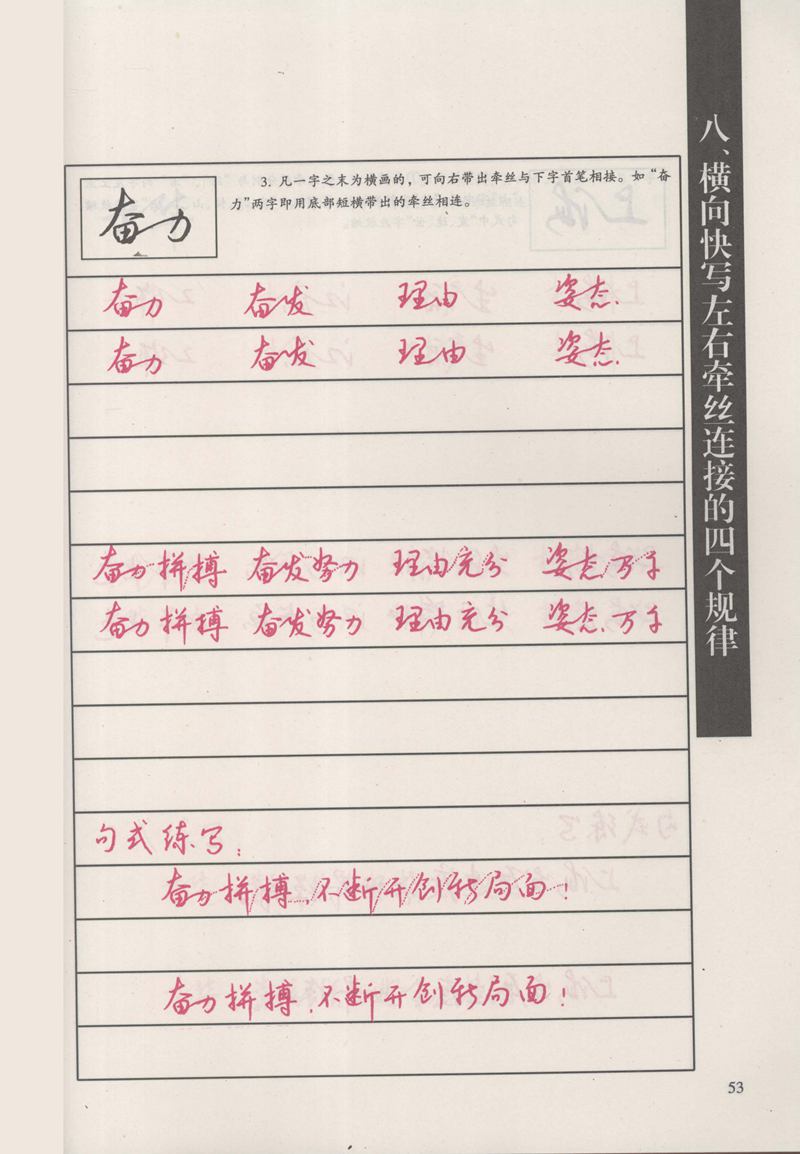 八、横向快写左右牵丝连接的四个规律
奋力
3. 凡一字之末为横画的，可向右带出牵丝与下字首笔相接。如“奋
力”两字即用底部短横带出的牵丝相连。
奋力 奋发 理由 姿态
奋力 奋发 理由 姿态
奋力拼搏 奋发努力 理由充分 姿态万千
奋力拼搏 奋发努力 理由充分 姿态万千
句式练写：
奋力拼搏，不断开创新局面！
奋力拼搏，不断开创新局面！
53